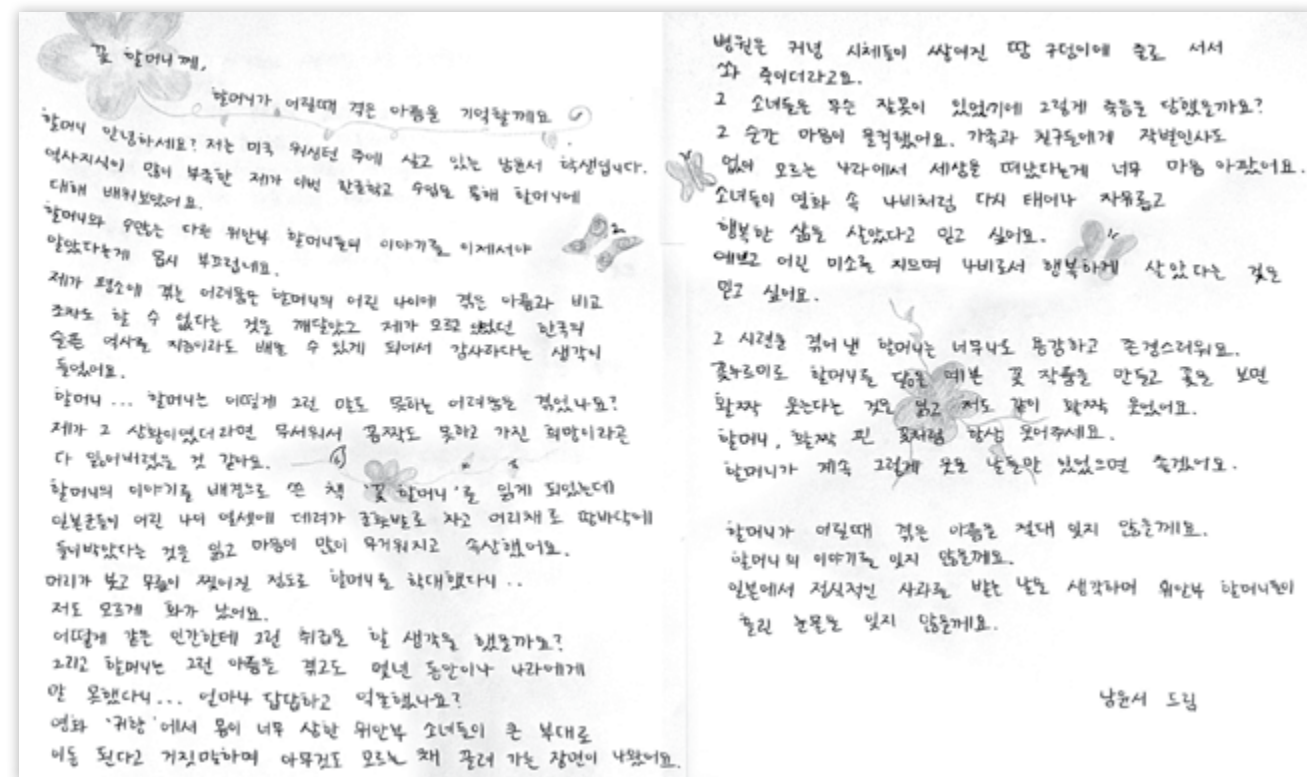 꽃 할머니께,
할머니가 어릴때 겪은 아픔을 기억할께요
할머니 안녕하세요? 저는 미국 워싱턴 주에 살고 있는 남윤서 학생입니다.
역사지식이 많이 부족한 제가 이번 한국학교 수업을 통해 할머니에
대해 배워보았어요.
할머니와 수많은 다른 위안부 할머니들의 이야기를 이제서야
알았다는게 몹시 부끄럽네요.
제가 평소에 겪는 어려움은 할머니의 어린 나이에 겪은 아픔과 비교
조차도 할 수 없다는 것을 깨달았고 제가 모르고 있었던 한국의
슬픈 역사를 지금이라도 배울 수 있게 되어서 감사하다는 생각이
들었어요.
할머니... 할머니는 어떻게 그런 말도 못하는 어려움을 겪었나요?
제가 그 상황이였더라면 무서워서 꼼짝도 못하고 가진 희망이라곤
다 잃어버렸을 것 같아요.
할머니의 이야기를 배경으로 쓴 책 '꽃 할머니'를 읽게 되었는데
일본군들이 어린 나이 열셋에 데려가 군홧발로 차고 머리채로 땅바닥에
들이박았다는 것을 읽고 마음이 많이 무거워지고 속상했어요.
머리가 붓고 무릎이 찢어질 정도로 할머니를 학대했다니..
저도 모르게 화가 났어요.
어떻게 같은 인간한테 그런 취급을 할 생각을 했을까요?
그리고 할머니는 그런 아픔을 겪고도 몇년 동안이나 나라에게
말 못했다니... 얼마나 답답하고 억울했나요?
영화 '귀향'에서 몸이 너무 상한 위안부 소녀들이 큰 부대로
이동 된다고 거짓말하며 아무것도 모르는 채 끌려 가는 장면이 나왔어요.
병원은 커녕 시체들이 쌓여진 땅 구덩이에 줄로 서서
쏴 죽이더라고요.
그 소녀들은 무슨 잘못이 있었기에 그렇게 죽음을 당했을까요?
그 순간 마음이 울컥했어요. 가족과 친구들에게 작별인사도
없이 모르는 나라에서 세상을 떠났다는게 너무 마음 아팠어요.
소녀들이 영화 속 나비처럼 다시 태어나 자유롭고
행복한 삶을 살았다고 믿고 싶어요.
예쁘고 어린 미소를 지으며 나비로서 행복하게 살았다는 것을
믿고 싶어요.
그 시련을 겪어 낸 할머니는 너무나도 용감하고 존경스러워요.
꽃누르미로 할머니를 닮은 예쁜 꽃 작품을 만들고 꽃을 보면
활짝 웃는다는 것을 읽고 저도 같이 활짝 웃었어요.
할머니, 활짝 핀 꽃처럼 항상 웃어주세요.
할머니가 계속 그렇게 웃을 날들만 있었으면 좋겠어요.
할머니가 어릴때 겪은 아픔을 절대 잊지 않을께요.
할머니의 이야기를 잊지 않을께요.
일본에서 정식적인 사과를 받는 날을 생각하며 위안부 할머니들이
흘린 눈물을 잊지 않을께요.
남윤서 드림